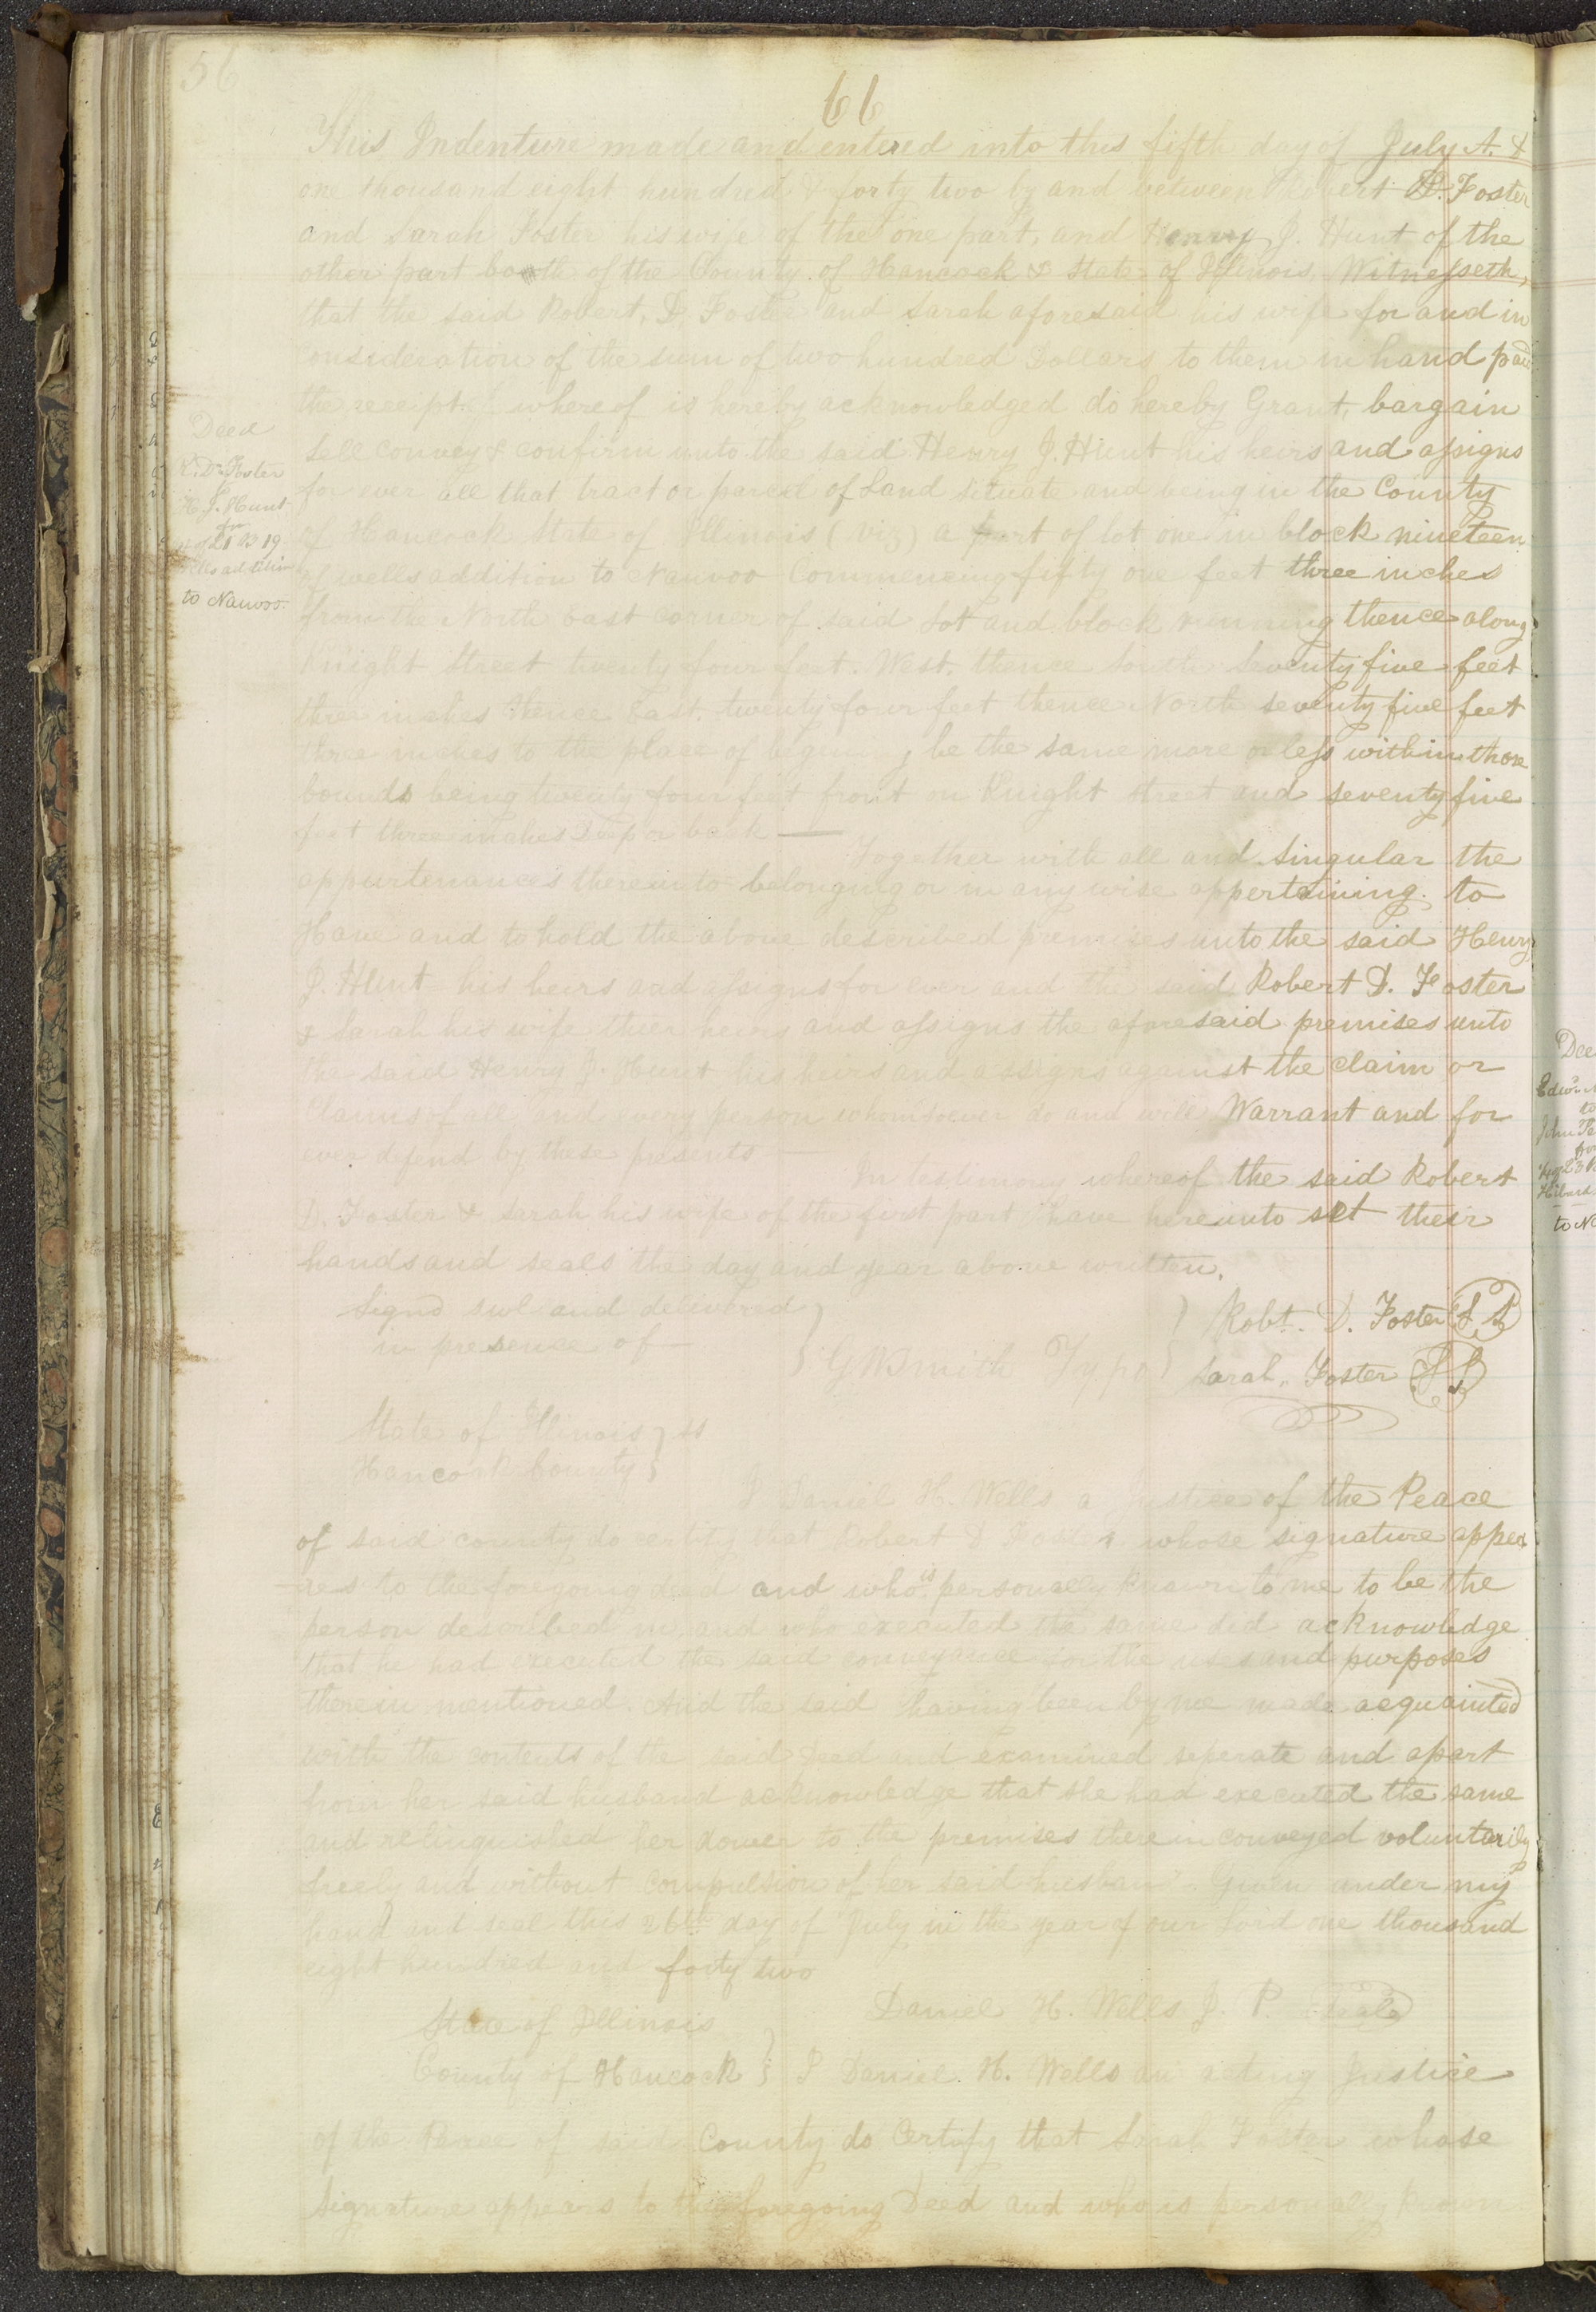 56
66
This Indenture made and entered into this fifth day of July A. D
one thousand eight hundred & forty two by and between Robert D. Foster
and Sarah Foster his wife of the one part, and Henry J. Hunt of the
other part both of the County of Hancock & State of Illinois Witnesseth,
that the said Robert, D, Foster and Sarah aforesaid his wife for and in
consideration of the sum of two hundred Dollars to them in hand paid
the receipt whereof is hereby acknowledged do hereby Grant, bargain
Sell Convey & confirm unto the said Henry J. Hunt his heirs and assigns
for ever all that tract or parcel of Land situate and being in the County
of Hancock State of Illinois (viz) a part of lot one in block nineteen
of wells addition to Nauvoo Commencing fifty one feet three inches
from the North East corner of said Lot and block running thence along
Knight Street twenty four feet. West. thence South seventy five feet
three inches thence East. twenty four feet thence North seventy five feet
three inches to the place of begining be the same more or less within those
bounds being twenty four feet front on Knight street and seventy five
feet three inches Deep or back —
Together with all and Singular the
appurtenances thereunto belonging or in any wise appertaining. to
Have and to hold the above described premises unto the said Henry
J. Hunt his heirs and assigns for ever and the said Robert D. Foster
& Sarah his wife their heirs and assigns the aforesaid premises unto
the said Henry J. Hunt his heirs and assigns against the claim or
Claims of all and every person whomsoever do and will Warrant and for
ever defend by these presents —
In testimony whereof the said Robert
D. Foster & Sarah his wife of the first part have hereunto set their
hands and seals the day and year above written.
Signd seal and delivered
in presence of
GW Smith
Robt. D. Foster L S
Sarah, Foster L S
State of Illinois } ss
Hancock County }
I Daniel H. Wells a Justice of the Peace
of said county do certify that Robert D Foster whose signature appea
-res to the foregoing deed and who is personally known to me to be the
person described in and who executed the same did acknowledge
that he had executed the said conveyance for the uses and purposes
therein mentioned. And the said having been by me made acquainted
with the contents of the said Deed and examined seperate and apart
from her said husband acknowledge that she had executed the same
and relinquished her dower to the premises therein conveyed voluntarily
freely and without compulsion of her said husband. Given under my
hand and seal this 26th day of July in the year of our Lord one thousand
eight hundred and forty two
Daniel H. Wells J. P. Seal
State of Illinois
County of Hancock } I Daniel. H. Wells an acting Justice
of the Peace of said County do Certify that Sarah Foster whose
Signature appears to the foregoing Deed and who is personally known
Deed
R. D. Foster
to
H. J. Hunt
for
L 1 B 19
Wells addition
to Nauvoo.